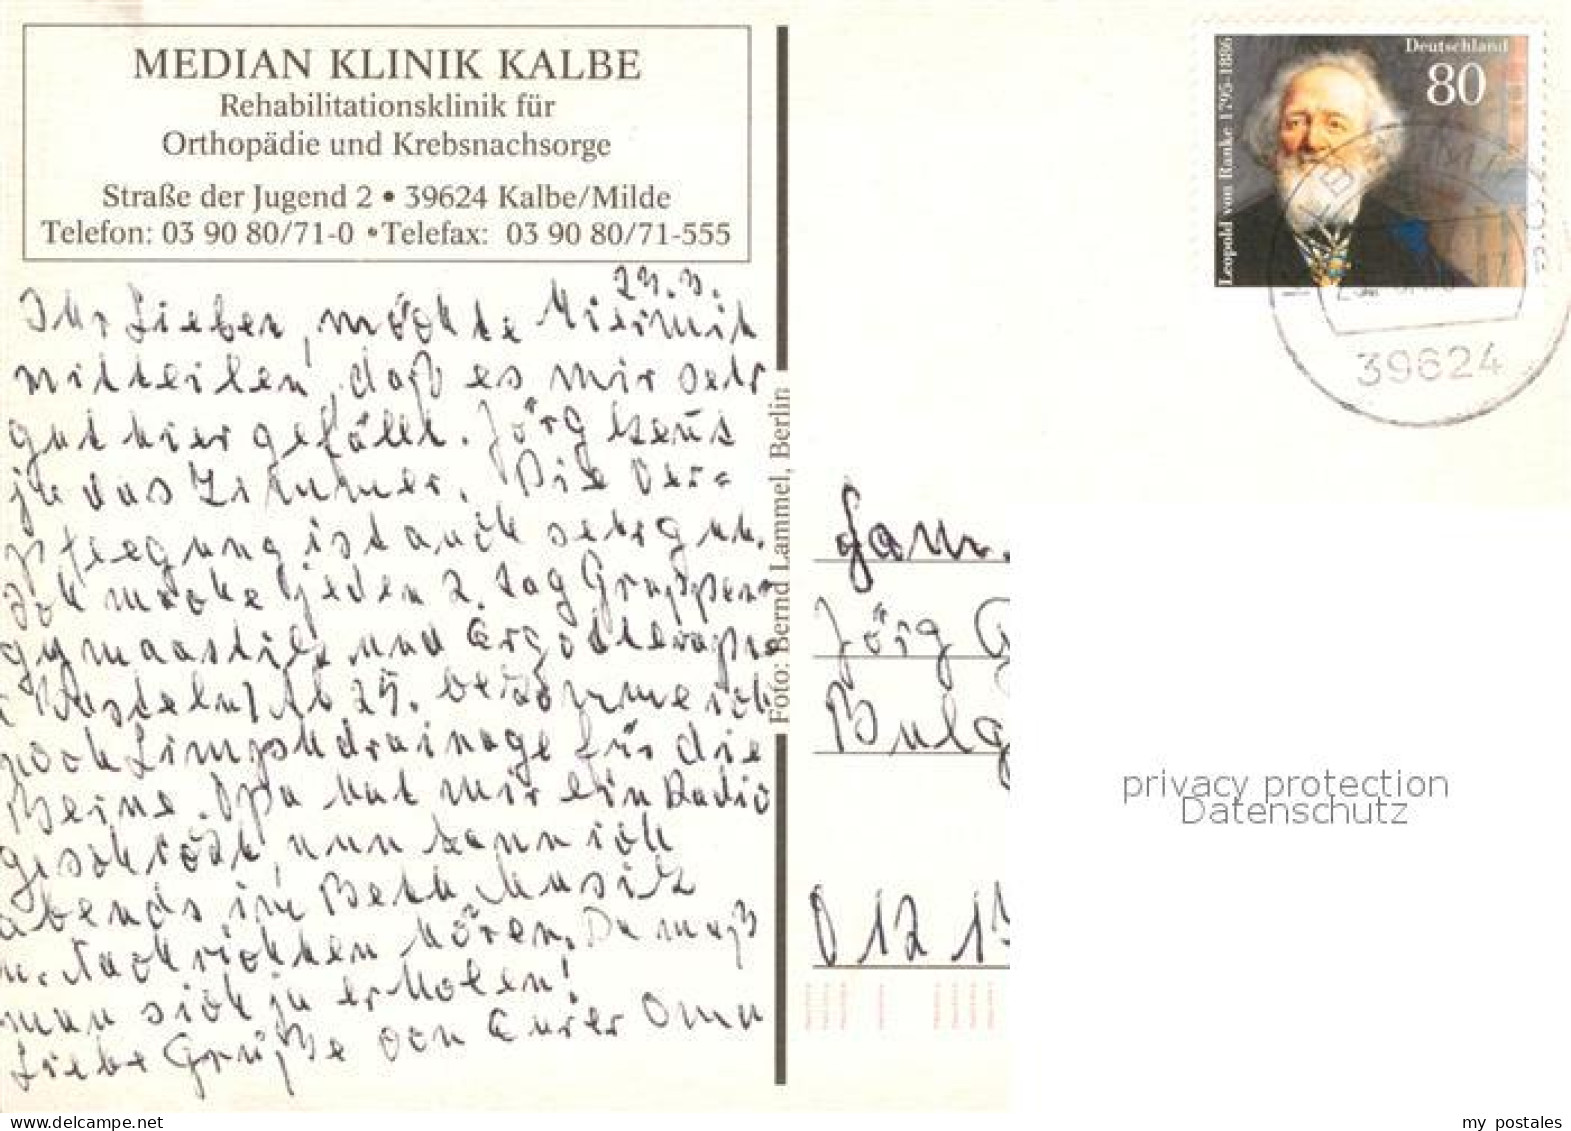 MEDIAN KLINIK KALBE
Rehabilitationsklinik für
Orthopädie und Krebsnachsorge
Straße der Jugend 2 • 39624 Kalbe/Milde
Telefon: 03 90 80/71-0 • Telefax: 03 90 80/71-555
Ihr Lieben, möchte hiermit
mitteilen, daß es mir sehr
gut hier gefällt. Jörg kennt
ja das Zimmer. Die Ver=
pflegung ist auch sehr gut.
Ich mache jeden 2. Tag Gruppen-
gymnastik und Ergotherapie
Basteln) Ab 25. bekomme ich
noch Limphdrainage für die
Beine. Opa hat mir ein Radio
geschickt, nun kann ich
abends im Bett Musik
u. Nachrichten hören. Da muß
man sich ja erholen!
Liebe Grüße von Eurer Oma
Foto: Bernd Lammel, Berlin
Deutschland
80
Leopold von Ranke 1795-1886
39624
Fam.
Jörg
Bulg
privacy protection
Datenschutz
my postales